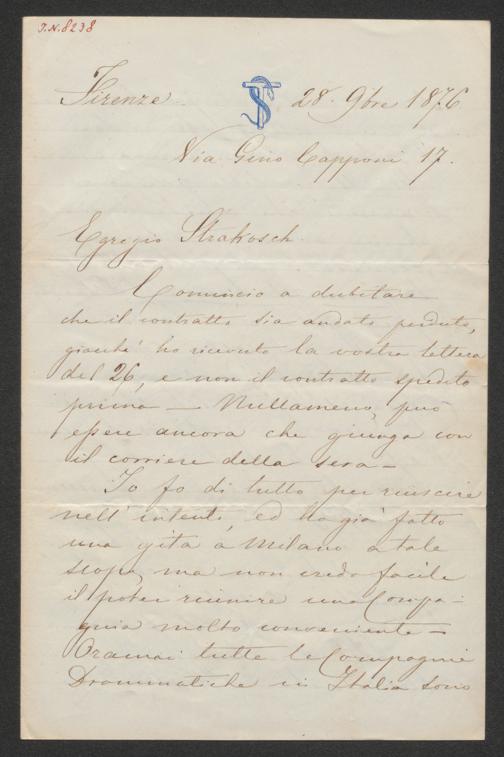 I.N. 8238
Firenze 28. 9bre 1876
Via Gino Capponi 17.
Egregio Strakosch
Comincio a dubitare
che il contratto sia andato perduto,
giacché ho ricevuto la vostra lettera
del 26, e non il contratto spedito
prima — Nullameno, può
essere ancora che giunga con
il corriere della sera —
Io fo di tutto per riuscire
nell' intento, ed ho già fatto
una gita a Milano a tale
scopo, ma non credo facile
il poter riunire una Compa-
gnia molto conveniente —
Oramai tutte le Compagnie
Drammatiche in Italia sono